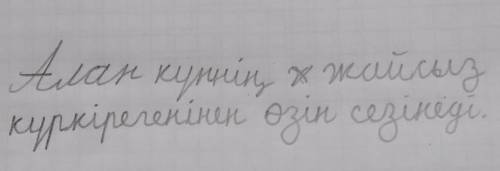 Алан күннің жайсыз
күркірегенінен өзін сезінеді.